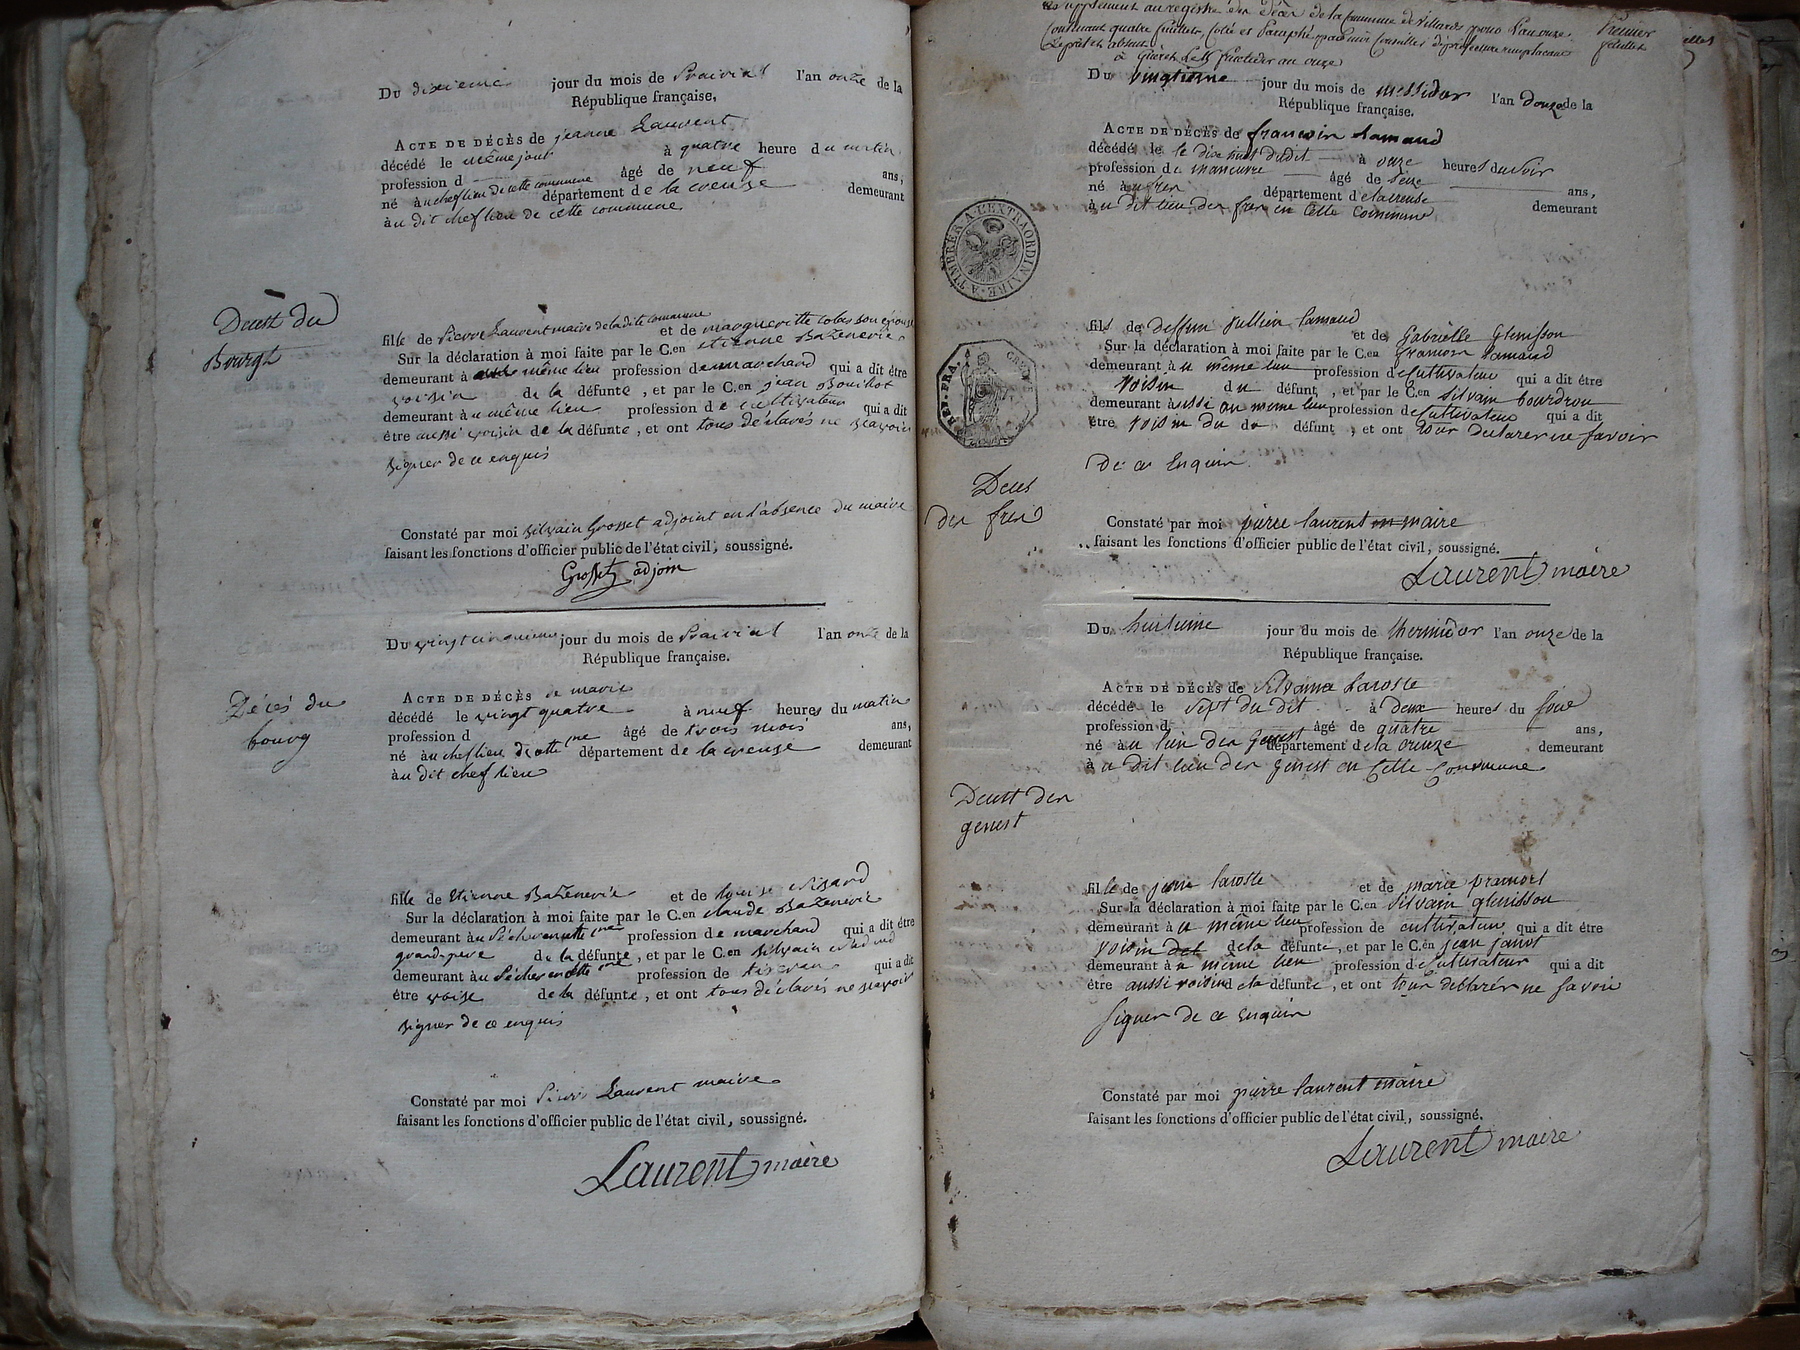 Du dixieme jour du mois de Prairial l'an onze de la
République française,
ACTE DE DÉCÈS de jeanne Laurent
décédé le même jour à quatre heure du matin
profession d âgé de neuf ans,
né au cheflieu de cette commune département de la creuse demeurant
à au dit chef lieu de cette commune
Decest du
Bourgt
fille de Pierre Laurent maire de la dite commune et de margueritte colas son épouse
Sur la déclaration à moi faite par le C.en etienne Bazenerie
demeurant à même lieu profession de marchand qui a dit être
voisin de la défunte, et par le C.en jean Bouchot
demeurant à u même lieu profession de cultivateur qui a dit
être aussi voisin de la défunte, et ont tous déclarés ne sçavoir
signer de ce enquis
Constaté par moi silvain Grosset adjoint en l'absence du maire
faisant les fonctions d'officier public de l'état civil, soussigné.
Grosset adjoin
Du vingt cinquieme jour du mois de Prairial l'an onze de la
République française.
Décés du
bourg
ACTE DE DÉCÈS de marie
décédé le vingt quatre à neuf heures du matin
profession d âgé de trois mois ans,
né au cheflieu de cette me département de la creuse demeurant
à u dit chef lieu
fille de Etienne Bazenerie et de
Sur la déclaration à moi faite par le C.en claude Bazenerie
demeurant au profession de marchand qui a dit être
grand-pere de la défunte, et par le C.en silvain
demeurant au profession de qui a dit
être voisin de la défunte, et ont tous déclarés ne sçavoir
signer de ce enquis
Constaté par moi Pierre Laurent maire
faisant les fonctions d'officier public de l'état civil, soussigné.
Laurent maire
supplement au registre des décès de la commune de Villard pour l'an onze Premier
Contenant quatre feuillets, Cotté et Paraphé par moi Conseiller de préfecture remplaçant feuillet
Le préfet absent
à Guéret le 25 fructidor an onze
Du vingtieme jour du mois de messidor l'an douze de la
République française.
ACTE DE DÉCÈS de francoin lamaud
décédé le le dix huit dudit à onze heures du soir
profession de maneuvre âgé de seize ans,
né à u fres département de la creuse demeurant
à u dit lieu des fres en Cette Commune
A TIMBRER A L'EXTRAORDINAIRE
REP. FRA. CREUSE
fils de deffun Jullien lamaud et de Gabrielle Glenisson
Sur la déclaration à moi faite par le C.en francoin lamaud
demeurant à u même lieu profession de Cultivateur qui a dit être
voisin du défunt, et par le C.en silvain bourdrou
demeurant à ussi au meme lieu profession de Cultivateur qui a dit
être voisin du dé défunt, et ont tous declarer ne savoir
De ce Enquin
Deces
des fres
Constaté par moi pierre laurent maire
faisant les fonctions d'officier public de l'état civil, soussigné.
Laurent maire
Du huitieme jour du mois de thermidor l'an onze de la
République française.
ACTE DE DÉCÈS de Silvaine larosse
décédé le sept du dit à deux heures du soire
profession d âgé de quatre ans,
né à u lieu des genest département de la creuze demeurant
à u dit lieu des genest en Cette Commune
Decest des
genest
fille de jean larosse et de marie
Sur la déclaration à moi faite par le C.en silvain glenisson
demeurant à u même lieu profession de cultivateur qui a dit être
voisin de la défunte, et par le C.en jean janot
demeurant à u même lieu profession de Cultivateur qui a dit
être aussi voisin de la défunte, et ont tous déclarer ne savoir
signer de ce Enquin
Constaté par moi pierre laurent maire
faisant les fonctions d'officier public de l'état civil, soussigné.
Laurent maire